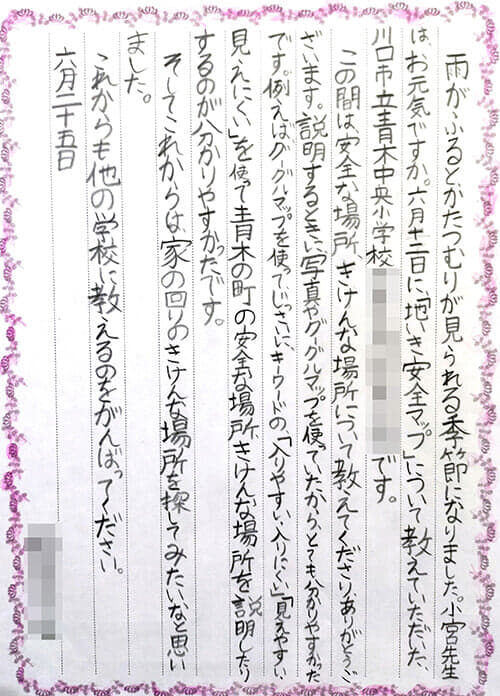 雨がふるとかたつむりが見られる季節になりました。小宮先生
は、お元気ですか。六月十二日に、「地いき安全マップ」について教えていただいた、
川口市立青木中央小学校
です。
この間は、安全な場所、きけんな場所について教えてくださり、ありがとうご
ざいます。説明するときに写真やグーグルマップを使っていたから、とても分かりやすかった
です。例えばグーグルマップを使ってじっさいにキーワードの、「入りやすい、入りにくい」「見えやすい、
見えにくい」を使って青木の町の安全な場所、きけんな場所を説明したり
するのが分かりやすかったです。
そしてこれからは、家の回りのきけんな場所を探してみたいなと思い
ました。
これからも他の学校に教えるのをがんばってください。
六月二十五日